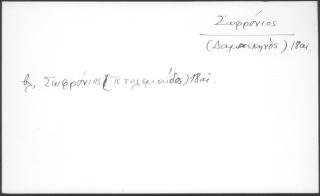 Σωφρόνιος
(Δαμασκηνός) 18αι.
βλ. Σωφρόνιος (Πτολεμαΐδος) 18αι.